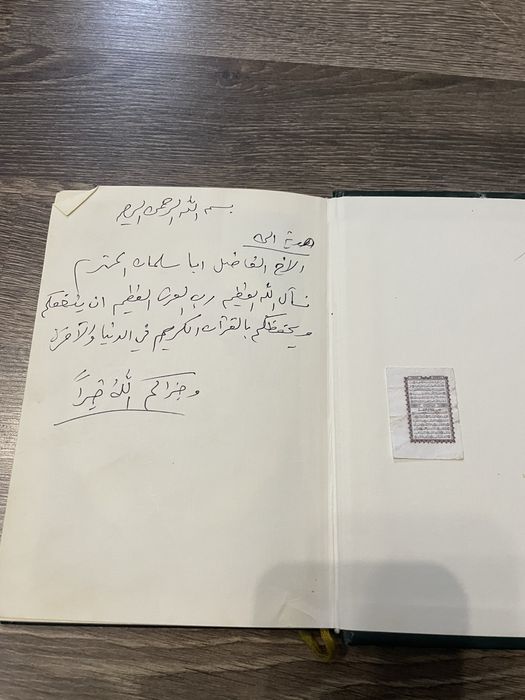 بسم الله الرحمن الرحيم
هدية الى
الاخ الفاضل ابا سلمان المحترم
نسأل الله العظيم رب العرش العظيم ان ينفعكم
ويحفظكم بالقرآن الكريم في الدنيا والآخرة
وجزاكم الله خيراً